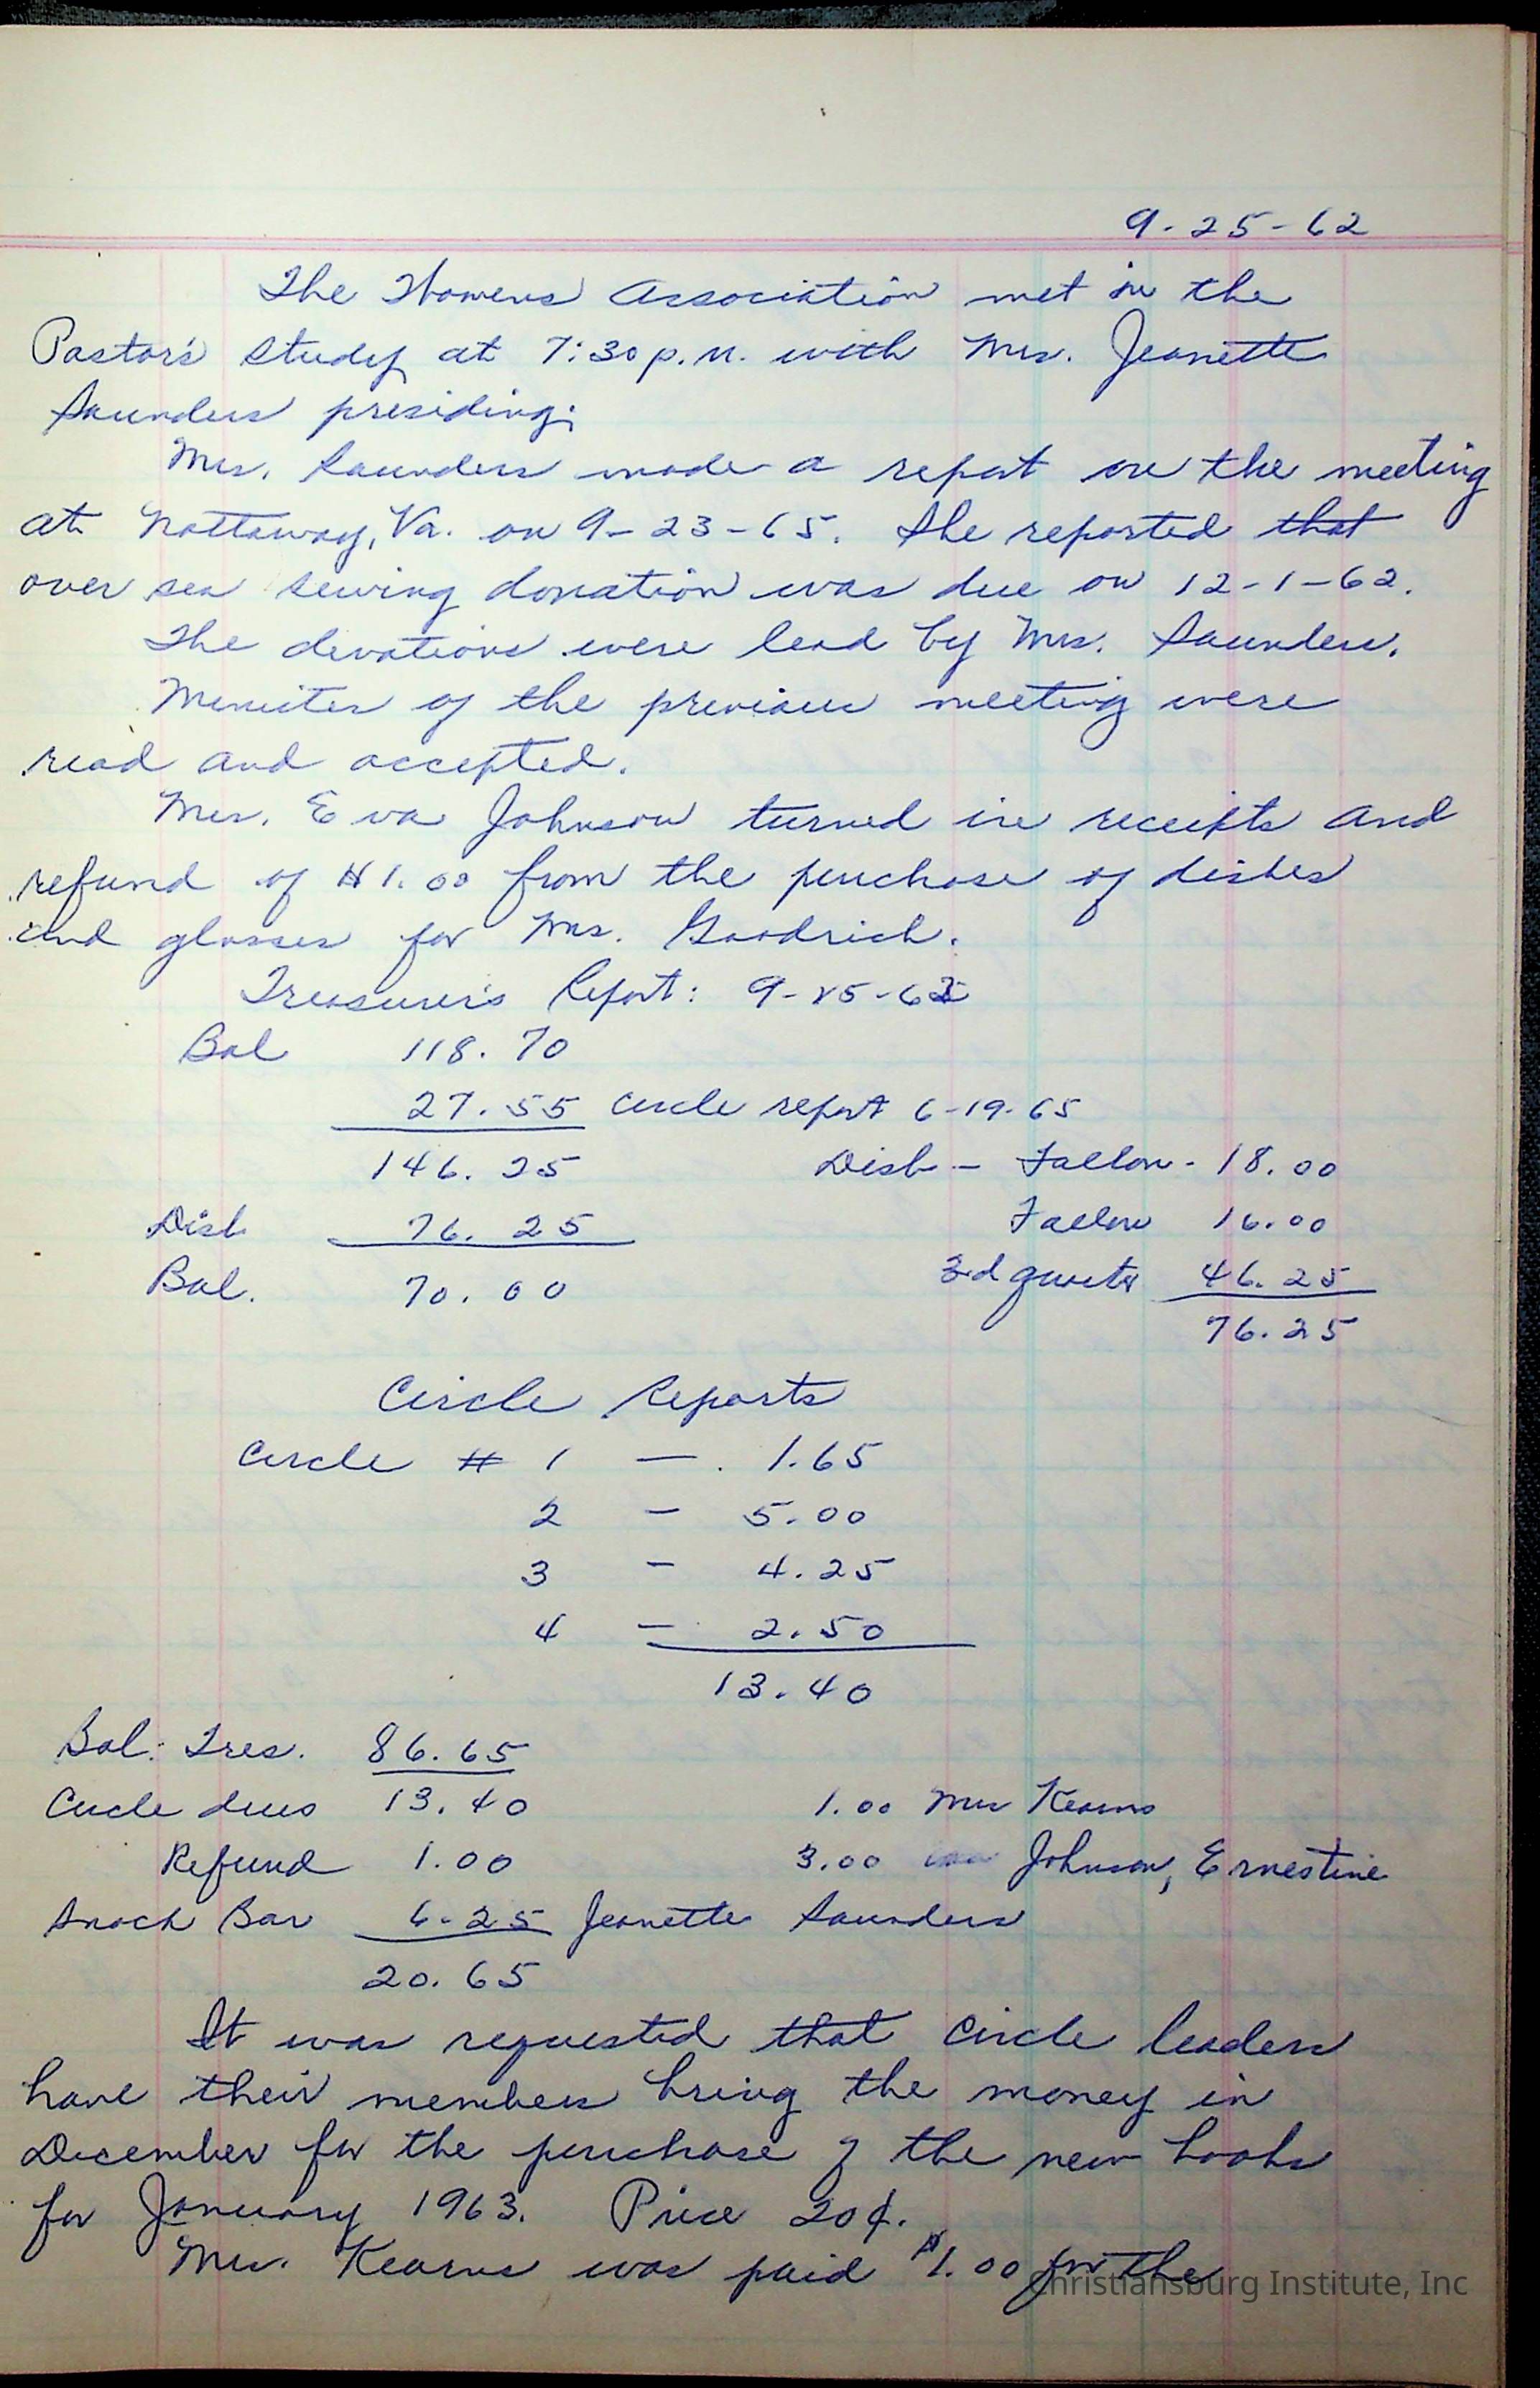 9-25-62
The Womens Association met in the
Pastor's study at 7:30 p.m. with Mrs. Jeanette
Saunders presiding.
Mrs. Saunders made a report on the meeting
at Nottaway, Va. on 9-23-65. She reported that
over sea sewing donation was due on 12-1-62.
The devotions were lead by Mrs. Saunders.
Minutes of the previous meeting were
read and accepted.
Mrs. Eva Johnson turned in receipts and
refund of $1.00 from the purchase of dishes
and glasses for Mrs. Goodrich.
Treasurer's Report: 9-25-62
Bal 118.70
27.55 Circle report 6-19-65
146.25 Disb - Fallow - 18.00
Disb 76.25 Fallow 16.00
Bal. 70.00 3rd quarter 46.25
76.25
Circle Reports
Circle # 1 - 1.65
2 - 5.00
3 - 4.25
4 - 2.50
13.40
Bal. Tres. 86.65
Circle dues 13.40 1.00 Mrs Kearns
Refund 1.00 3.00 Johnson, Ernestine
Snack Bar 6.25 Jeanette Saunders
20.65
It was requested that circle leaders
have their members bring the money in
December for the purchase of the new books
for January 1963. Price 20¢.
Mrs. Kearns was paid $1.00 for the
Christiansburg Institute, Inc